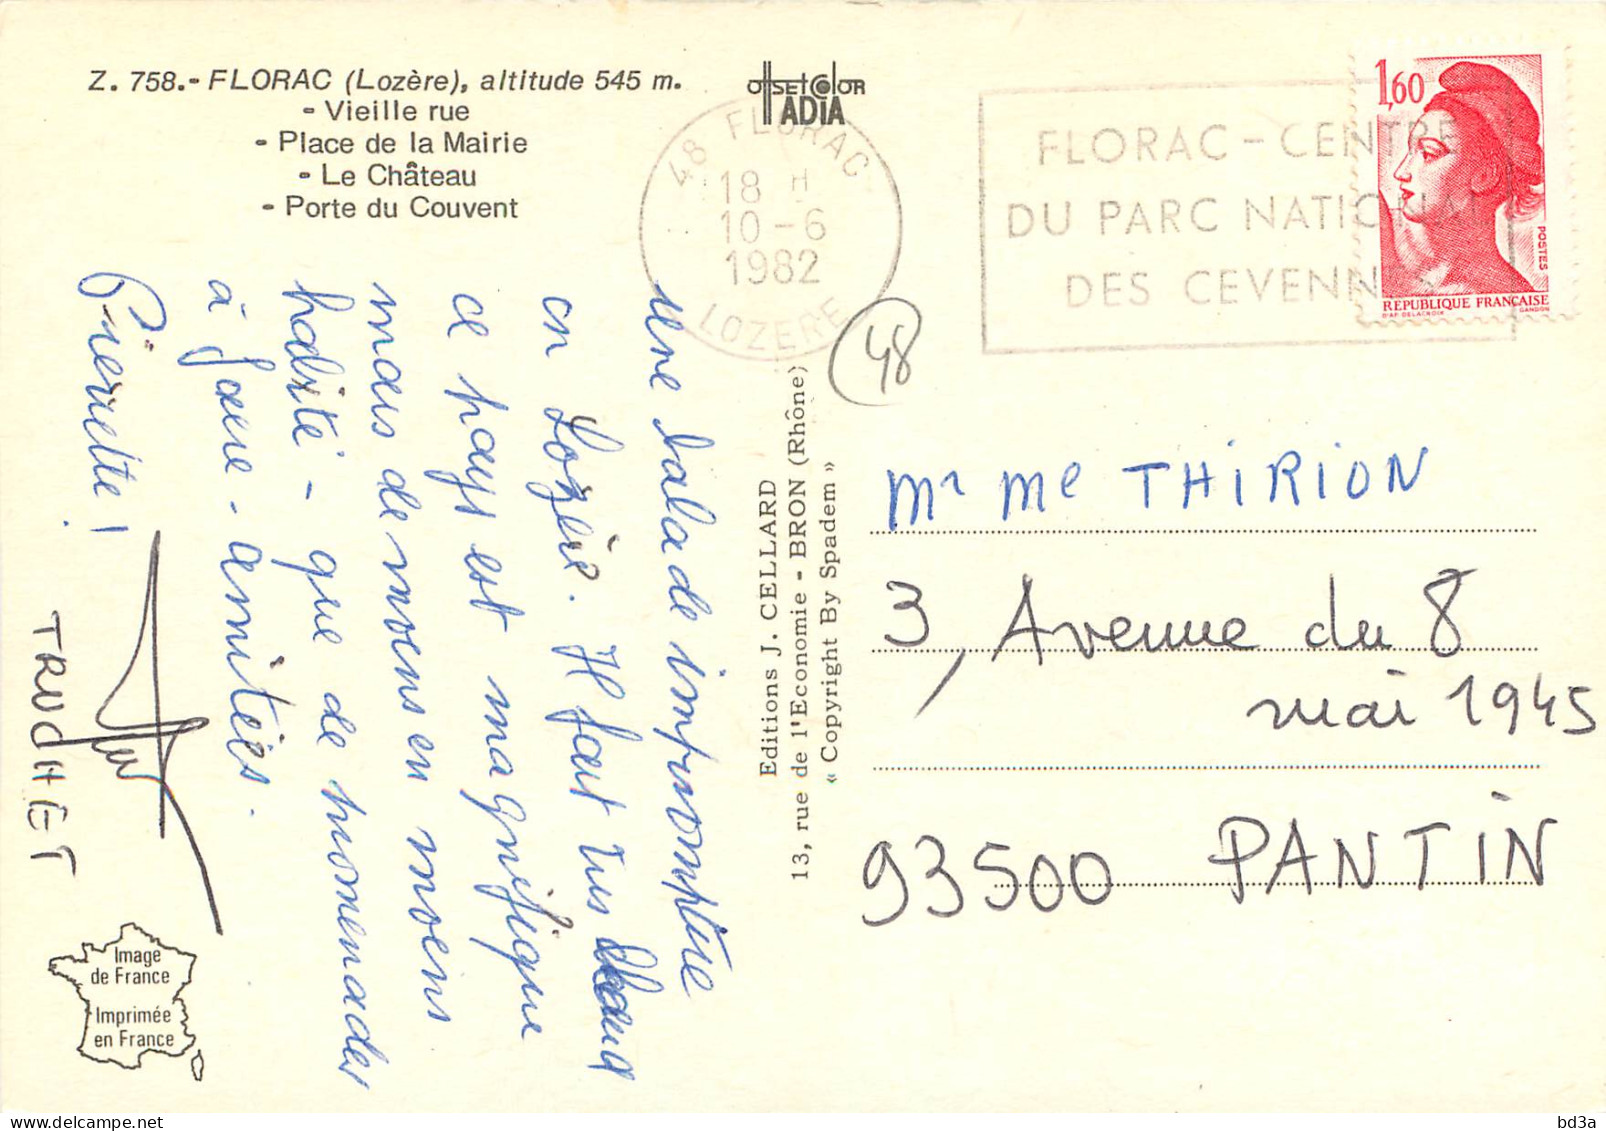 Z. 758.- FLORAC (Lozère), altitude 545 m.
- Vieille rue
- Place de la Mairie
- Le Château
- Porte du Couvent
offsetcolor
ADIA
48 FLORAC
18 H
10-6
1982
LOZERE
FLORAC-CENTRE
DU PARC NATIONAL
DES CEVENNES
1,60
POSTES
REPUBLIQUE FRANÇAISE
D'AP. DELACROIX GANDON
48
une balade impromptue
en Lozère. Il fait très chaud
ce pays est magnifique
mais de moens en moens
habité - que de
à faire - amitiés.
Pierrette!
TRUCHET
Editions J. CELLARD
13, rue de l'Economie - BRON (Rhône)
« Copyright By Spadem »
Mr Me THIRION
3, Avenue du 8
mai 1945
93500 PANTIN
Image
de France
Imprimée
en France
delcampe.net
bd3a